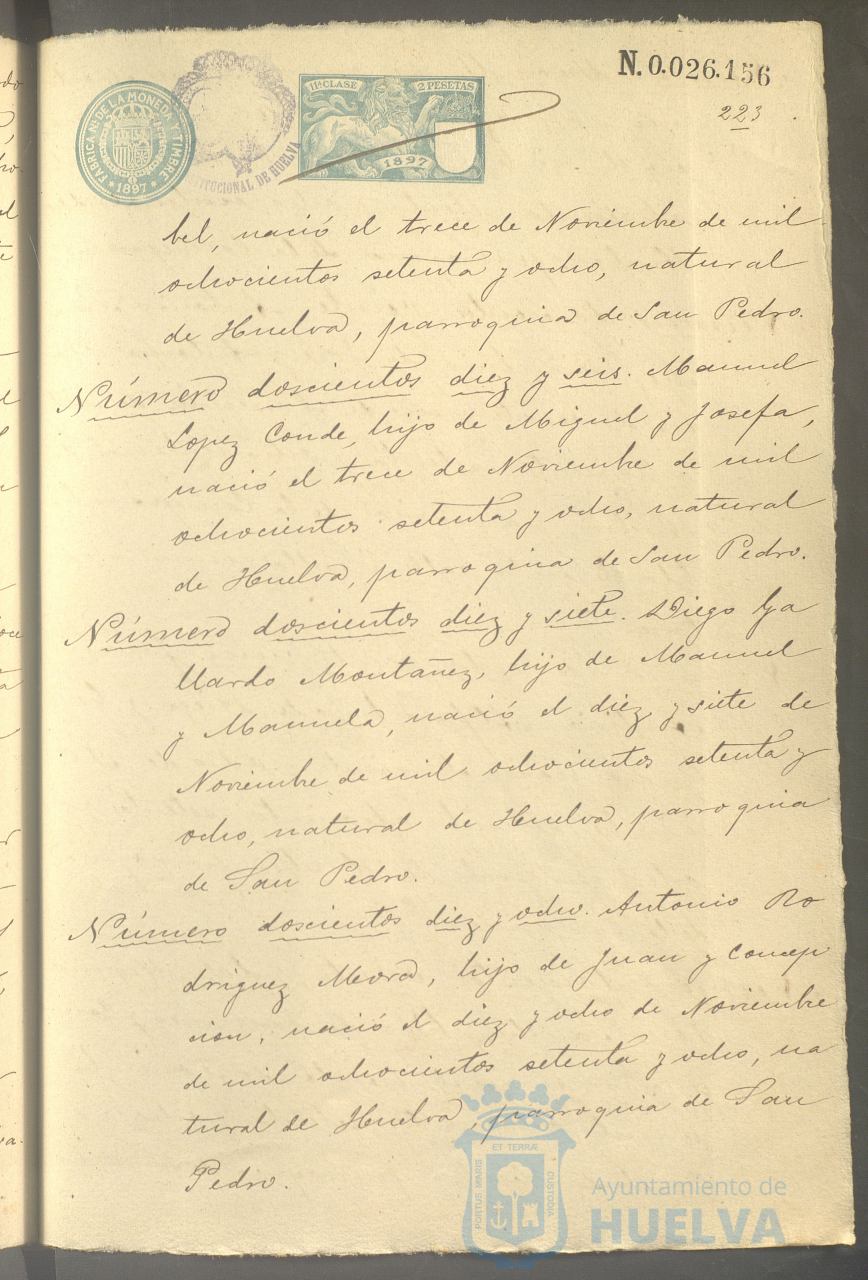 N. 0.026.156
223
FABRICA N. DE LA MONEDA Y TIMBRE
1897
TUCIONAL DE HUELVA
11ª CLASE 2 PESETAS
1897
bel, nació el trece de Noviembre de mil
ochocientos setenta y ocho, natural
de Huelva, parroquia de San Pedro.
Número doscientos diez y seis. Manuel
Lopez Conde, hijo de Miguel y Josefa,
nació el trece de Noviembre de mil
ochocientos setenta y ocho, natural
de Huelva, parroquia de San Pedro.
Número doscientos diez y siete. Diego Ga
llardo Montañez, hijo de Manuel
y Manuela, nació el diez y siete de
Noviembre de mil ochocientos setenta y
ocho, natural de Huelva, parroquia
de San Pedro.
Número doscientos diez y ocho. Antonio Ro
driguez Mora, hijo de Juan y Concep
cion, nació el diez y ocho de Noviembre
de mil ochocientos setenta y ocho, na
tural de Huelva, parroquia de San
Pedro.
PORTUS MARIS ET TERRÆ CUSTODIA
Ayuntamiento de
HUELVA